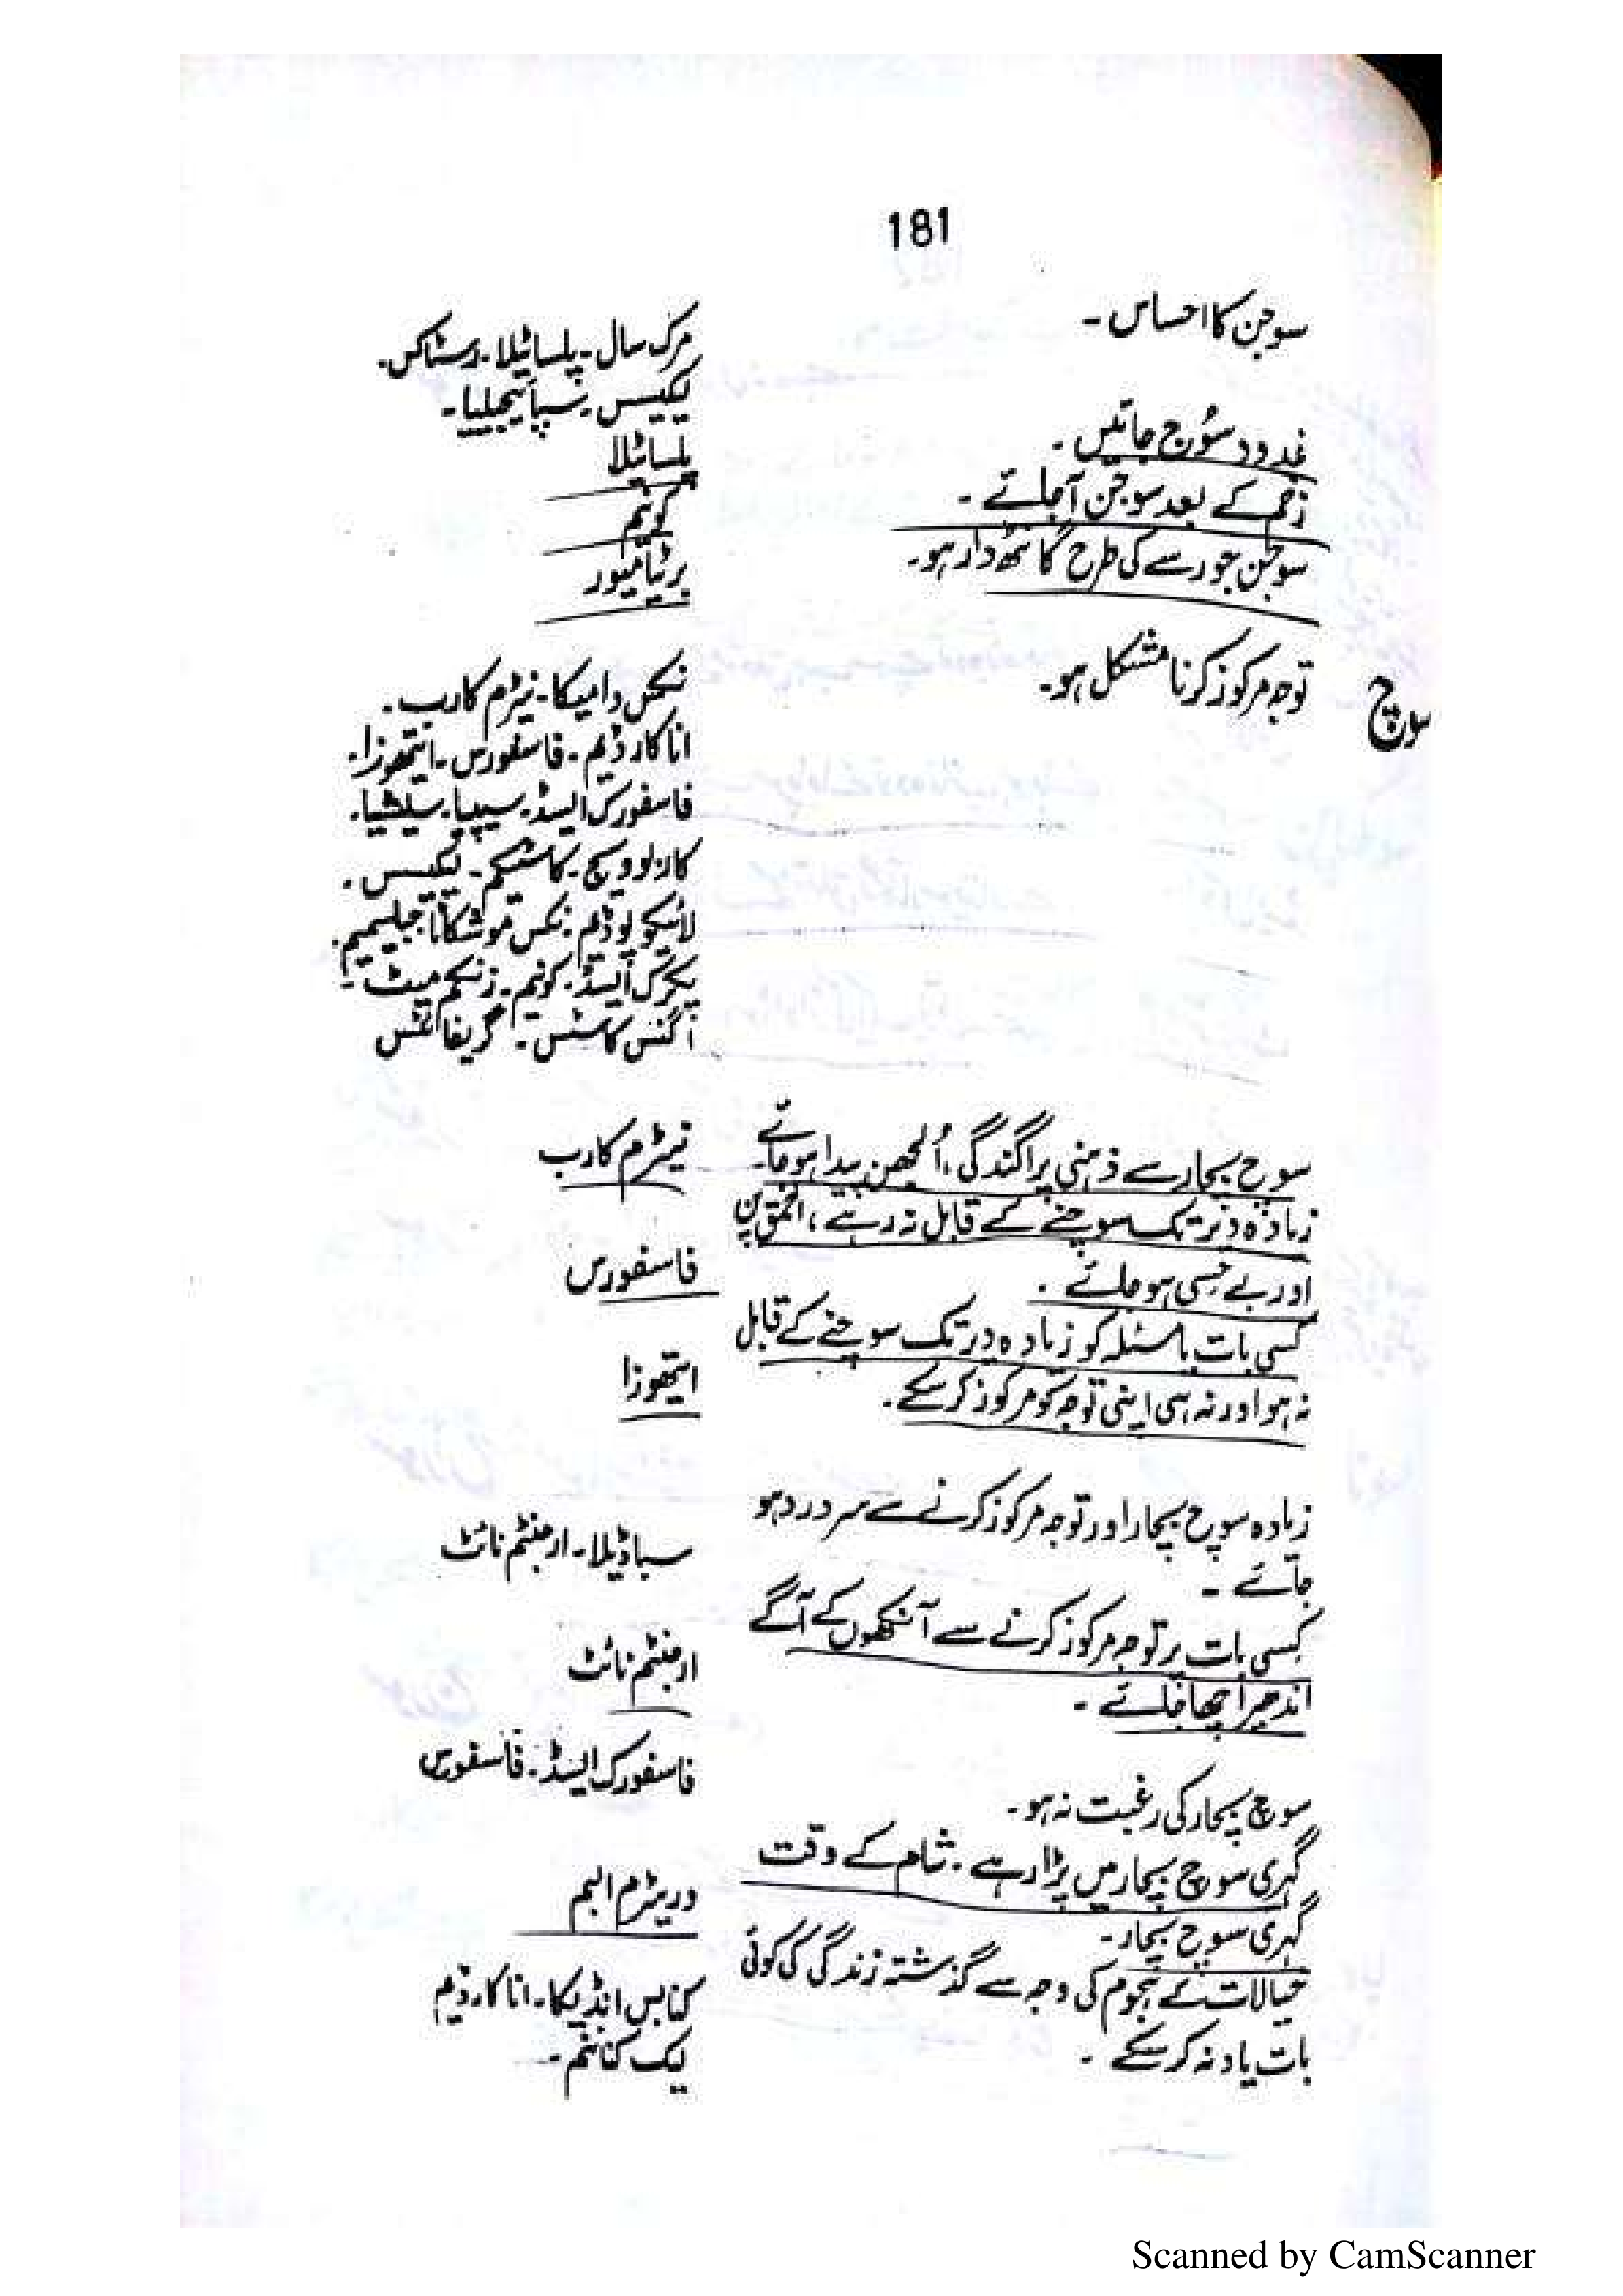 181
سوجن کا احساس ۔
مرک سال ۔ پلساٹیلا ۔ رسٹاکس ۔
لیکیسس ۔ سپائیجیلیا ۔
غدود سُوج جائیں ۔
پلساٹیلا
زخم کے بعد سوجن آجائے ۔
کونیم
سوجن جو رسے کی طرح گانٹھ دار ہو ۔
برٹیامیور
سوچ
توجہ مرکوز کرنا مشکل ہو ۔
نکس وامیکا ۔ نیٹرم کارب ۔
اناکارڈیم ۔ فاسفورس ۔ ایتھوزا ۔
فاسفورک ایسڈ ۔ سیپیا ۔ سیلشیا ۔
کاربوویج ۔ کاسٹیکم ۔ لیکیسس ۔
لائیکوپوڈیم ۔ نکس موشکاٹا جیلسیمیم ۔
پکرک ایسڈ ۔ کونیم ۔ زنکم میٹ ۔
اگنس کاسٹس ۔ گریفائٹس
سوچ بچار سے ذہنی پراگندگی ، اُلجھن پیدا ہو جائے
نیٹرم کارب
زیادہ دیر تک سوچنے کے قابل نہ رہے ، احمق پن
اور بے حسی ہو جائے ۔
فاسفورس
کسی بات یا مسئلہ کو زیادہ دیر تک سوچنے کے قابل
نہ ہو اور نہ ہی اپنی توجہ کو مرکوز کر سکے ۔
ایتھوزا
زیادہ سوچ بچار اور توجہ مرکوز کرنے سے سر درد ہو
جائے ۔
سباڈیلا ۔ ارجنٹم نائٹ
کسی بات پر توجہ مرکوز کرنے سے آنکھوں کے آگے
اندھیرا چھا جائے ۔
ارجنٹم نائٹ
سوچ بچار کی رغبت نہ ہو ۔
فاسفورک ایسڈ ۔ فاسفورس
گہری سوچ بچار میں پڑا رہے ۔ شام کے وقت
گہری سوچ بچار ۔
وریٹرم البم
خیالات کے ہجوم کی وجہ سے گذشتہ زندگی کی کوئی
بات یاد نہ کر سکے ۔
کنابس انڈیکا ۔ اناکارڈیم
لیک کنائنم ۔
Scanned by CamScanner